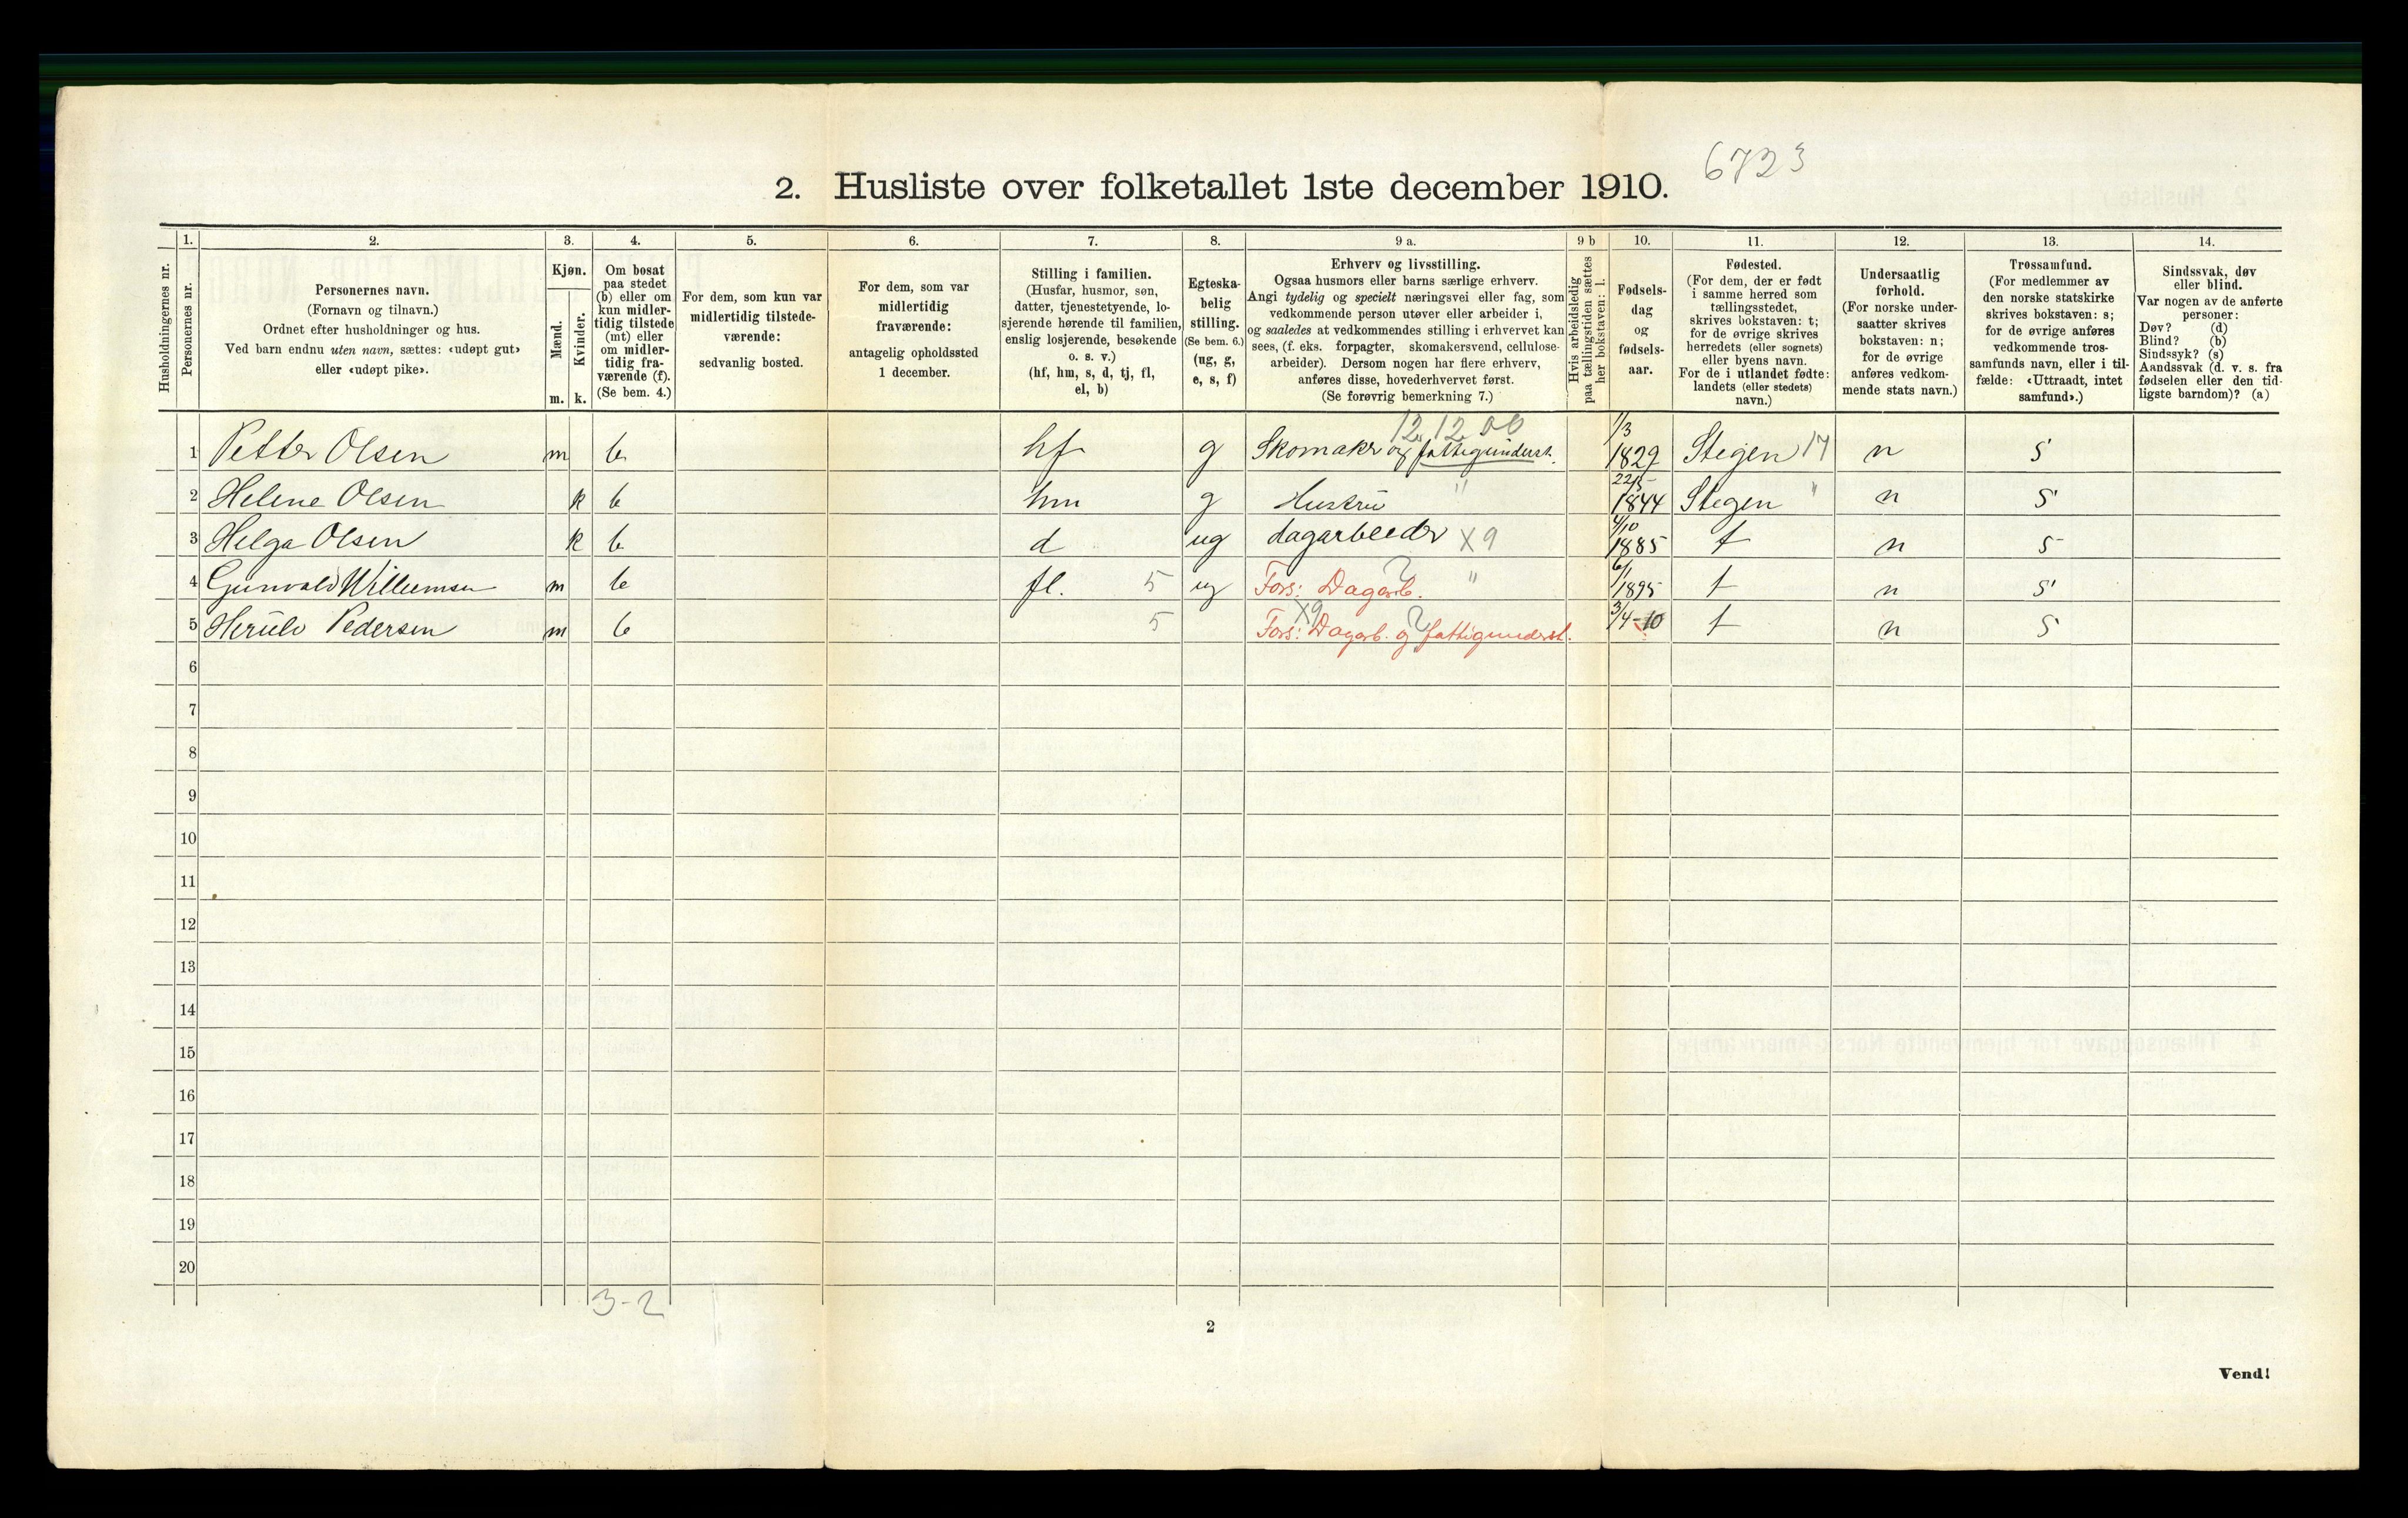 6723
2. Husliste over folketallet 1ste december 1910.
1. 2. 3. 4. 5. 6. 7. 8. 9 a. 9 b 10. 11. 12. 13. 14.
Husholdningernes nr.
Personernes nr.
Personernes navn.
(Fornavn og tilnavn.)
Ordnet efter husholdninger og hus.
Ved barn endnu uten navn, sættes: «udøpt gut»
eller «udøpt pike».
Kjøn.
Mænd.
Kvinder.
m. k.
Om bosat
paa stedet
(b) eller om
kun midler-
tidig tilstede
(mt) eller
om midler-
tidig fra-
værende (f).
(Se bem. 4.)
For dem, som kun var
midlertidig tilstede-
værende:
sedvanlig bosted.
For dem, som var
midlertidig
fraværende:
antagelig opholdssted
1 december.
Stilling i familien.
(Husfar, husmor, søn,
datter, tjenestetyende, lo-
sjerende hørende til familien,
enslig losjerende, besøkende
o. s. v.)
(hf, hm, s, d, tj, fl,
el, b)
Egteska-
belig
stilling.
(Se bem. 6.)
(ug, g,
e, s, f)
Erhverv og livsstilling.
Ogsaa husmors eller barns særlige erhverv.
Angi tydelig og specielt næringsvei eller fag, som
vedkommende person utøver eller arbeider i,
og saaledes at vedkommendes stilling i erhvervet kan
sees, (f. eks. forpagter, skomakersvend, cellulose-
arbeider). Dersom nogen har flere erhverv,
anføres disse, hovederhvervet først.
(Se forøvrig bemerkning 7.)
Hvis arbeidsledig
paa tællingstiden sættes
her bokstaven: l.
Fødsels-
dag
og
fødsels-
aar.
Fødested.
(For dem, der er født
i samme herred som
tællingsstedet,
skrives bokstaven: t;
for de øvrige skrives
herredets (eller sognets)
eller byens navn.
For de i utlandet fødte:
landets (eller stedets)
navn.)
Undersaatlig
forhold.
(For norske under-
saatter skrives
bokstaven: n;
for de øvrige
anføres vedkom-
mende stats navn.)
Trossamfund.
(For medlemmer av
den norske statskirke
skrives bokstaven: s;
for de øvrige anføres
vedkommende tros-
samfunds navn, eller i til-
fælde: «Uttraadt, intet
samfund».)
Sindssvak, døv
eller blind.
Var nogen av de anførte
personer:
Døv? (d)
Blind? (b)
Sindssyk? (s)
Aandssvak (d. v. s. fra
fødselen eller den tid-
ligste barndom)? (a)
12 12 00
1 Petter Olsen m b hf g Skomaker og fattigunderst. 1/3 1829 Stegen 17 n s
2 Helene Olsen k b hm g Hustru " 22/5 1844 Stegen " n s
3 Helga Olsen k b d ug dagarbeider X9 4/10 1885 t n s
4 Gunvald Willumsen m b fl. 5 ug Fors: Dagarb. " 6/1 1895 t n s
5 Pedersen m b 5 X9 Fors: Dagarb. og fattigunderst. 3/4-10 t n s
6
7
8
9
10
11
12
13
14
15
16
17
18
19
20
3-2
2
Vend!